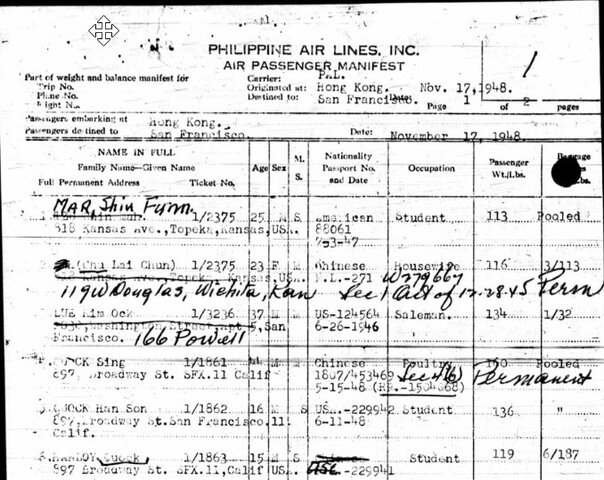 PHILIPPINE AIR LINES, INC.
AIR PASSENGER MANIFEST
1
Part of weight and balance manifest for Carrier: PAL.
Trip No. Originated at: Hong Kong. Nov. 17,1948.
Plane No. Destined to: San Francisco. Date:
Flight No. Page 1 of 2 pages
Passengers embarking at Hong Kong.
Passengers destined to San Francisco. Date: November 17, 1948.
NAME IN FULL
Family Name—Given Name
Full Permanent Address Ticket No. Age Sex M. S. Nationality Passport No. and Date Occupation Passenger Wt./Lbs. Baggage
MAR, Shiu Fumn
1/2375 25 M S American Student 113 Pooled
818 Kansas Ave., Topeka, Kansas, USA. 88061
7-3-47
(Chu Lai Chun) 1/2375 23 F M Chinese Housewife 116 3/113
Kansas Ave., Topeka, Kansas, USA. F.L.-271 W279667
119 W Douglas, Wichita, Kan Sec 1 Act of 12-28-45 Perm
LUE Kim Ock 1/3236 37 M US-124564 Salesman. 134 1/32
Washington Street, apt 5, San 6-26-1946
Francisco. 166 Powell
QUOCK Sing 1/1861 44 M Chinese Poultry Pooled
897, Broadway St. SFX.11 Calif 1807/453469 Sec 4(b) Permanent
5-15-48 (RP.-1504868)
QUOCK Han Son 1/1862 16 M S US.-229942 Student 136 "
897, Broadway St.San Francisco, 11 6-11-48
Calif.
Quock 1/1863 15 M S Student 119 6/187
897 Broadway St. SFX.11,Calif USA. -229941